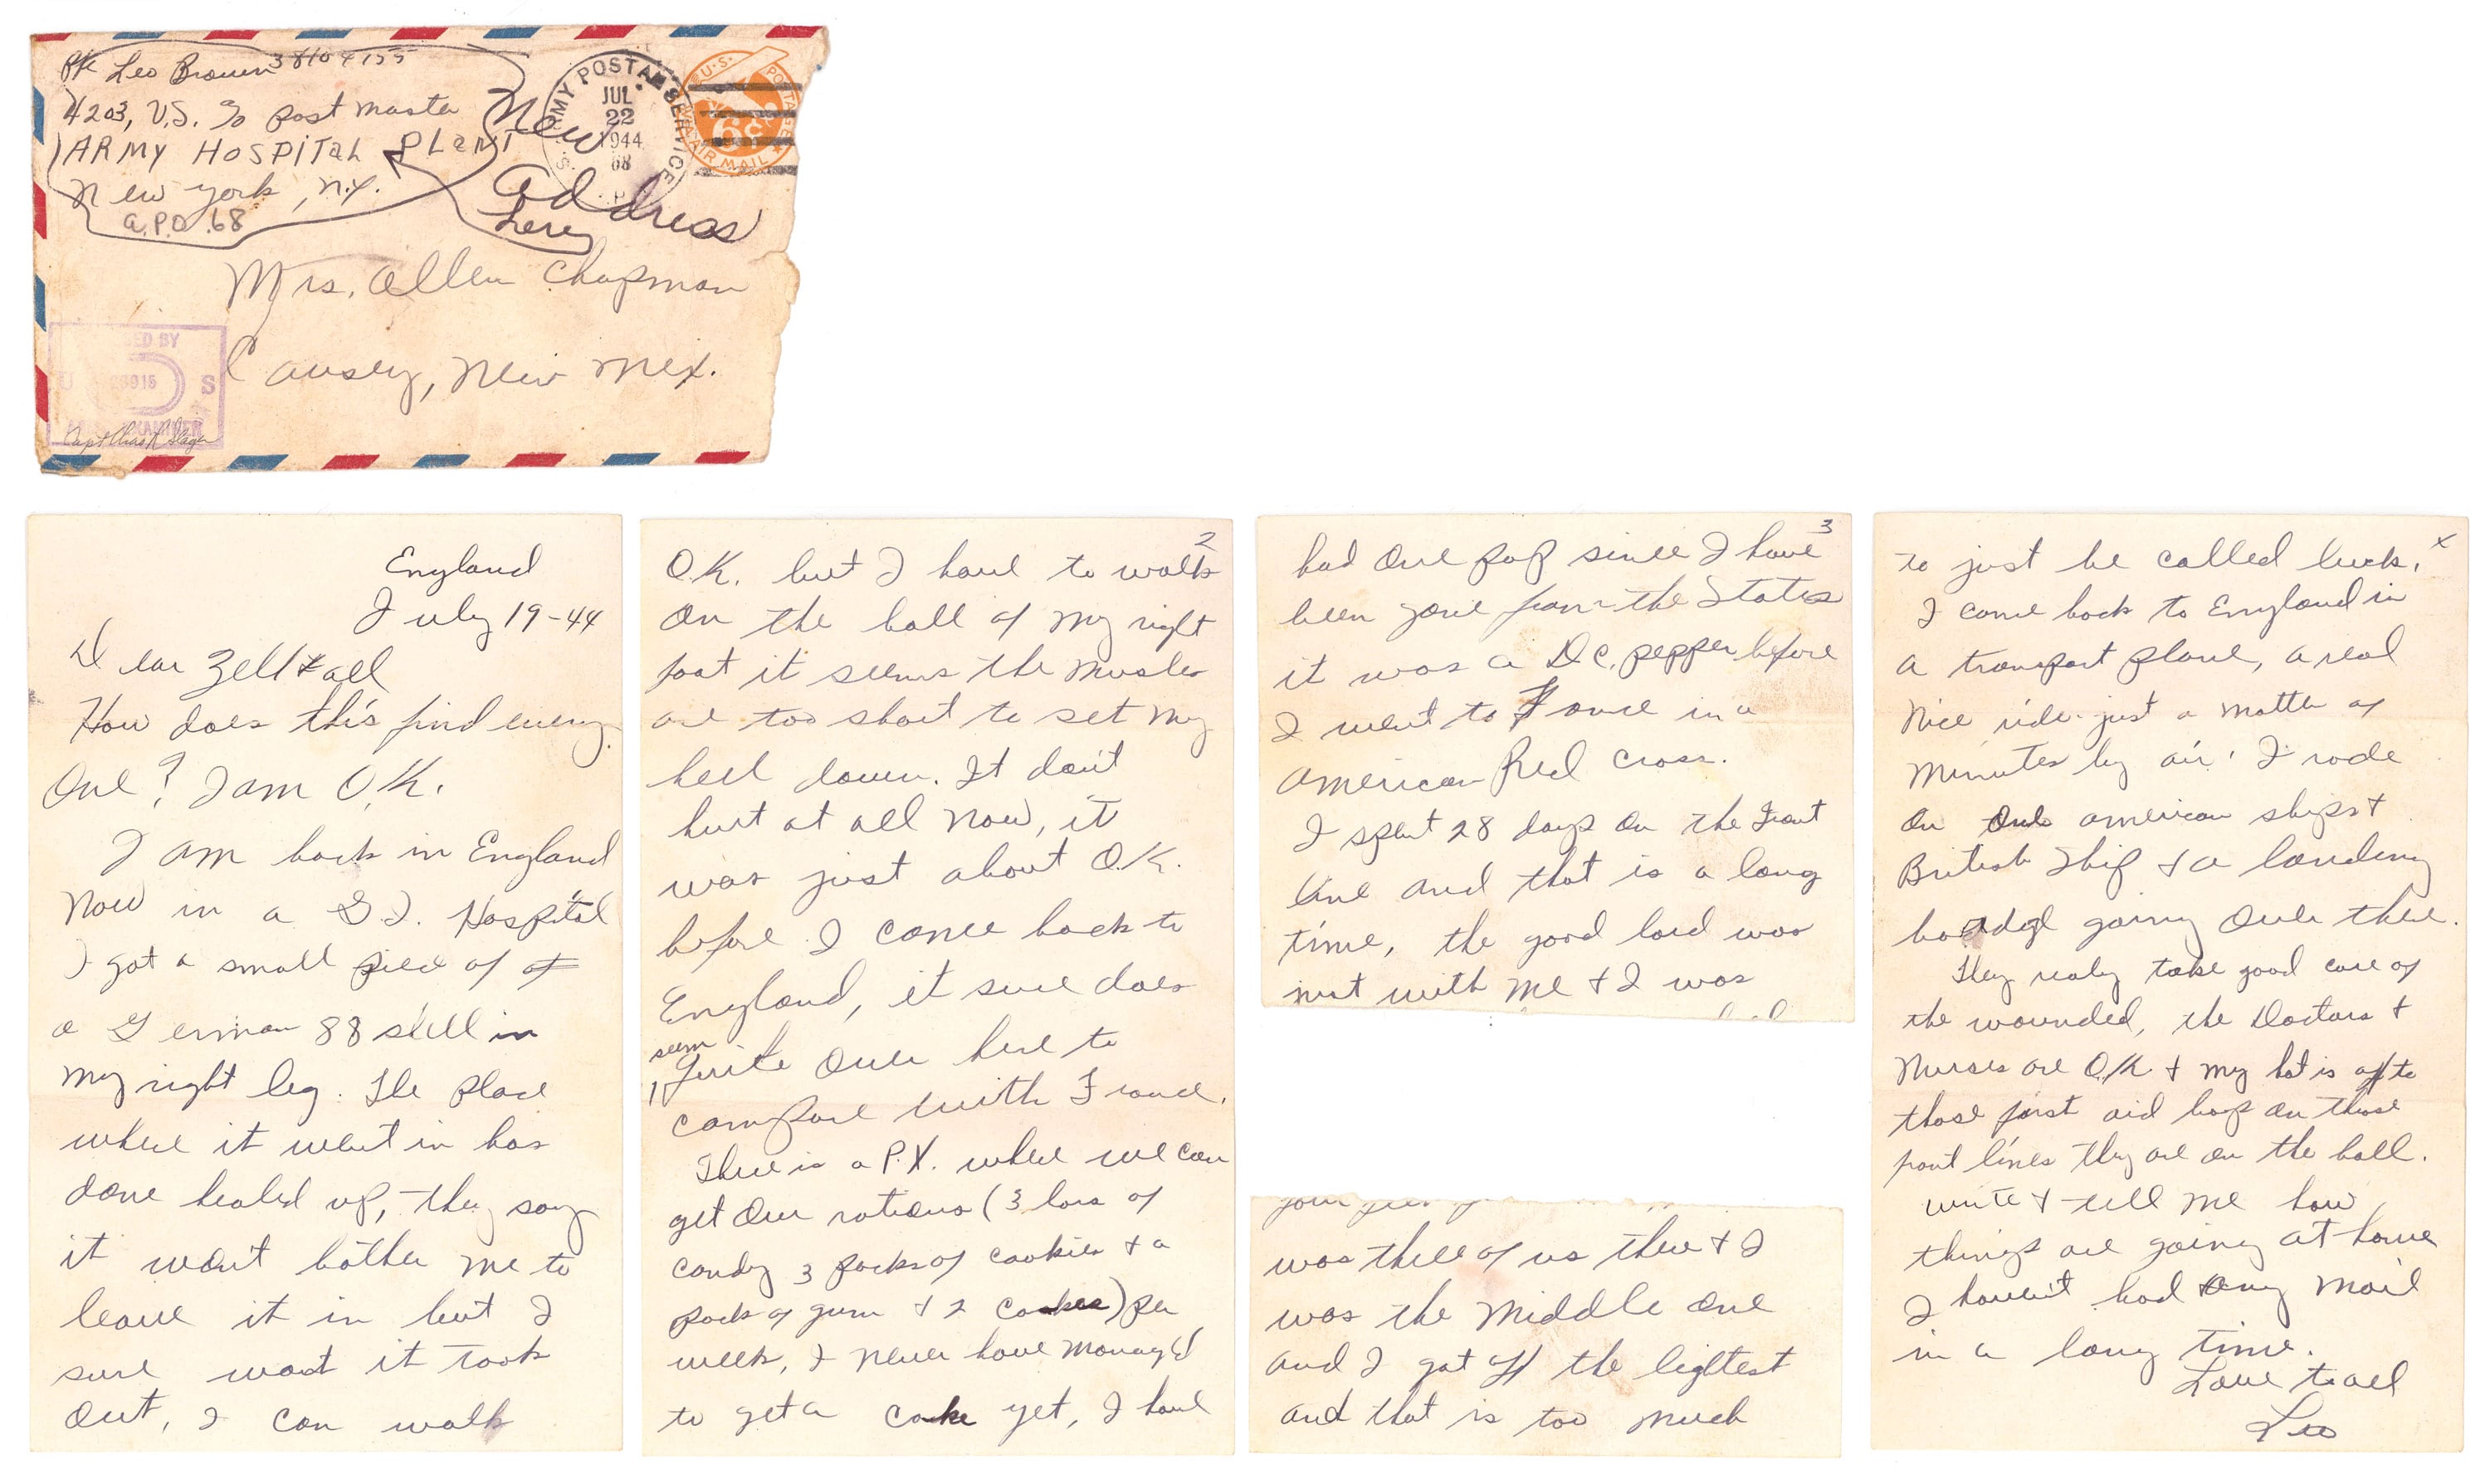 Pfc Leo Brown 38104155
4203, U.S. % post master
ARMY HOSPITAL PLANT
New York, n.y.
A.P.O. 68
New
address
ARMY POSTAL SERVICE
JUL
22
1944
68
U.S. POSTAGE
6¢
VIA AIR MAIL
Mrs. Allen Chapman
Causey, New Mex.
ED BY
U S
Capt Chas
England
July 19-44
Dear Zell & all
How does this find every
one? I am O.K.
I am back in England
Now in a G.I. Hospital
I got a small piece of of
a German 88 shell in
my right leg. The place
where it went in has
done healed up, they say
it won't bother me to
leave it in but I
sure want it took
out, I can walk
2
O.K. but I have to walk
on the ball of my right
foot it seems the musles
are too short to set my
heel down. It don't
hurt at all now, it
was just about O.K.
before I come back to
England, it sure does
seem
quite over here to
compare with France.
There is a P.X. where we can
get our rations (3 bars of
candy 3 packs of cookies & a
pack of gum & 2 cokes) per
week, I never have managed
to get a coke yet, I have
3
had one pop since I have
been gone from the States
it was a Dr. pepper before
I went to France in a
American Red Cross.
I spent 28 days on the Front
line and that is a long
time, the good lord was
just with me & I was
was three of us there & I
was the middle one
and I got off the lightest
and that is too much
to just be called luck.
I come back to England in
a transport plane, a real
Nice ride. just a matter of
Minutes by air. I rode
on american ships &
British Ship & a landing
going over there.
They realy take good care of
the wounded, the Doctors &
Nurses are O.K. & my hat is off to
those first aid boys on those
front lines they are on the ball.
write & tell me how
things are going at home
I haven't had any mail
in a long time.
Love to all
Leo